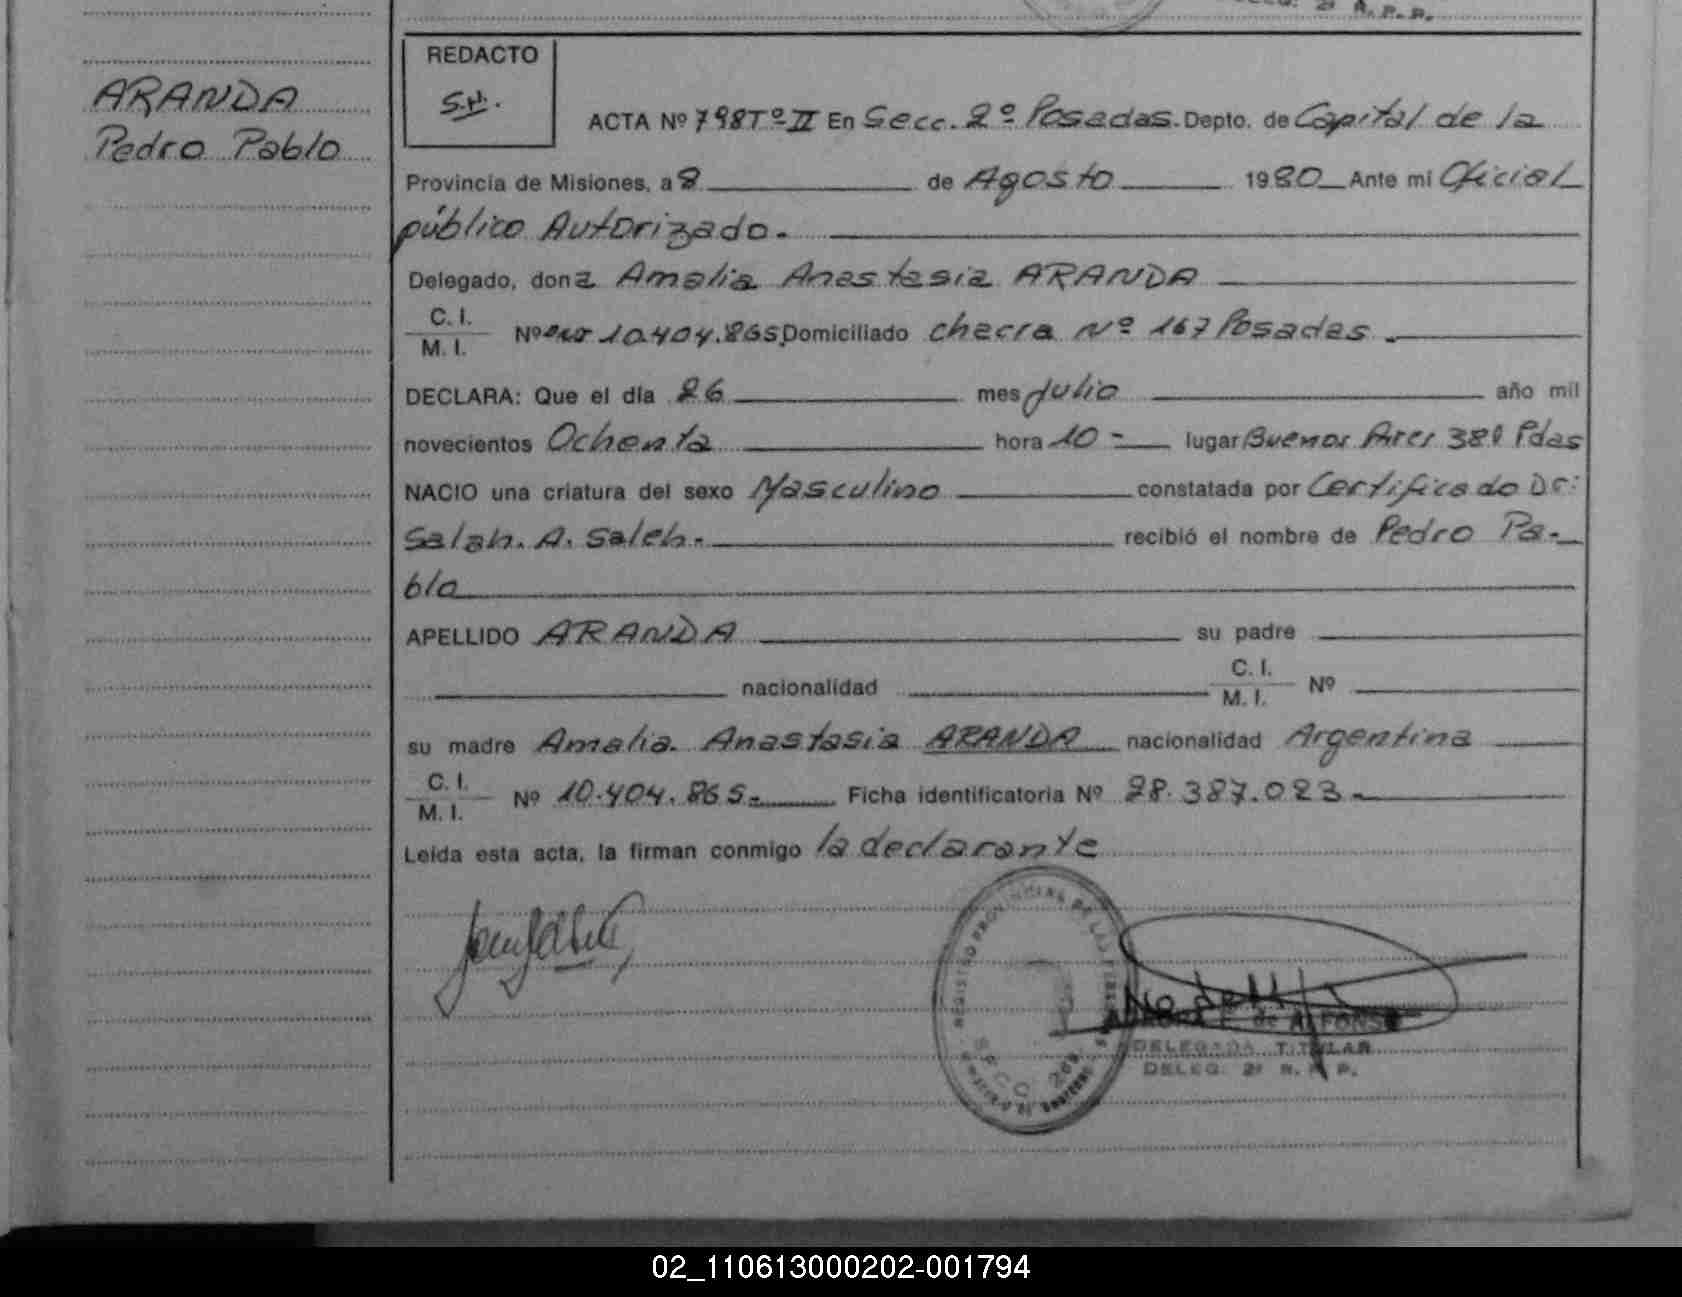 DELEG. 2ª R.P.P.
REDACTO
S.H.
ARANDA
Pedro Pablo
ACTA Nº 798 Tº II En Secc. 2º Posadas. Depto. de Capital de la
Provincia de Misiones, a 8 de Agosto 1980 Ante mi Oficial
público Autorizado.
Delegado, dona Amalia Anastasia ARANDA
C. I.
M. I. Nº 10.404.865 Domiciliado chacra Nº 167 Posadas.
DECLARA: Que el día 26 mes Julio año mil
novecientos Ochenta hora 10 - lugar Buenos Aires 381 Pdas
NACIO una criatura del sexo Masculino constatada por Certificado Dr:
Salah. A. Saleh.- recibió el nombre de Pedro Pa-
blo
APELLIDO ARANDA su padre
nacionalidad C. I.
M. I. Nº
su madre Amalia Anastasia ARANDA nacionalidad Argentina
C. I.
M. I. Nº 10.404.865- Ficha identificatoria Nº 28.387.023-
Leída esta acta, la firman conmigo la declarante
REGISTRO PROVINCIAL DE LAS PERSONAS
SECC. 2da.
de ALFONSO
DELEGADA TITULAR
DELEG. 2ª R. P. P.
02_110613000202-001794